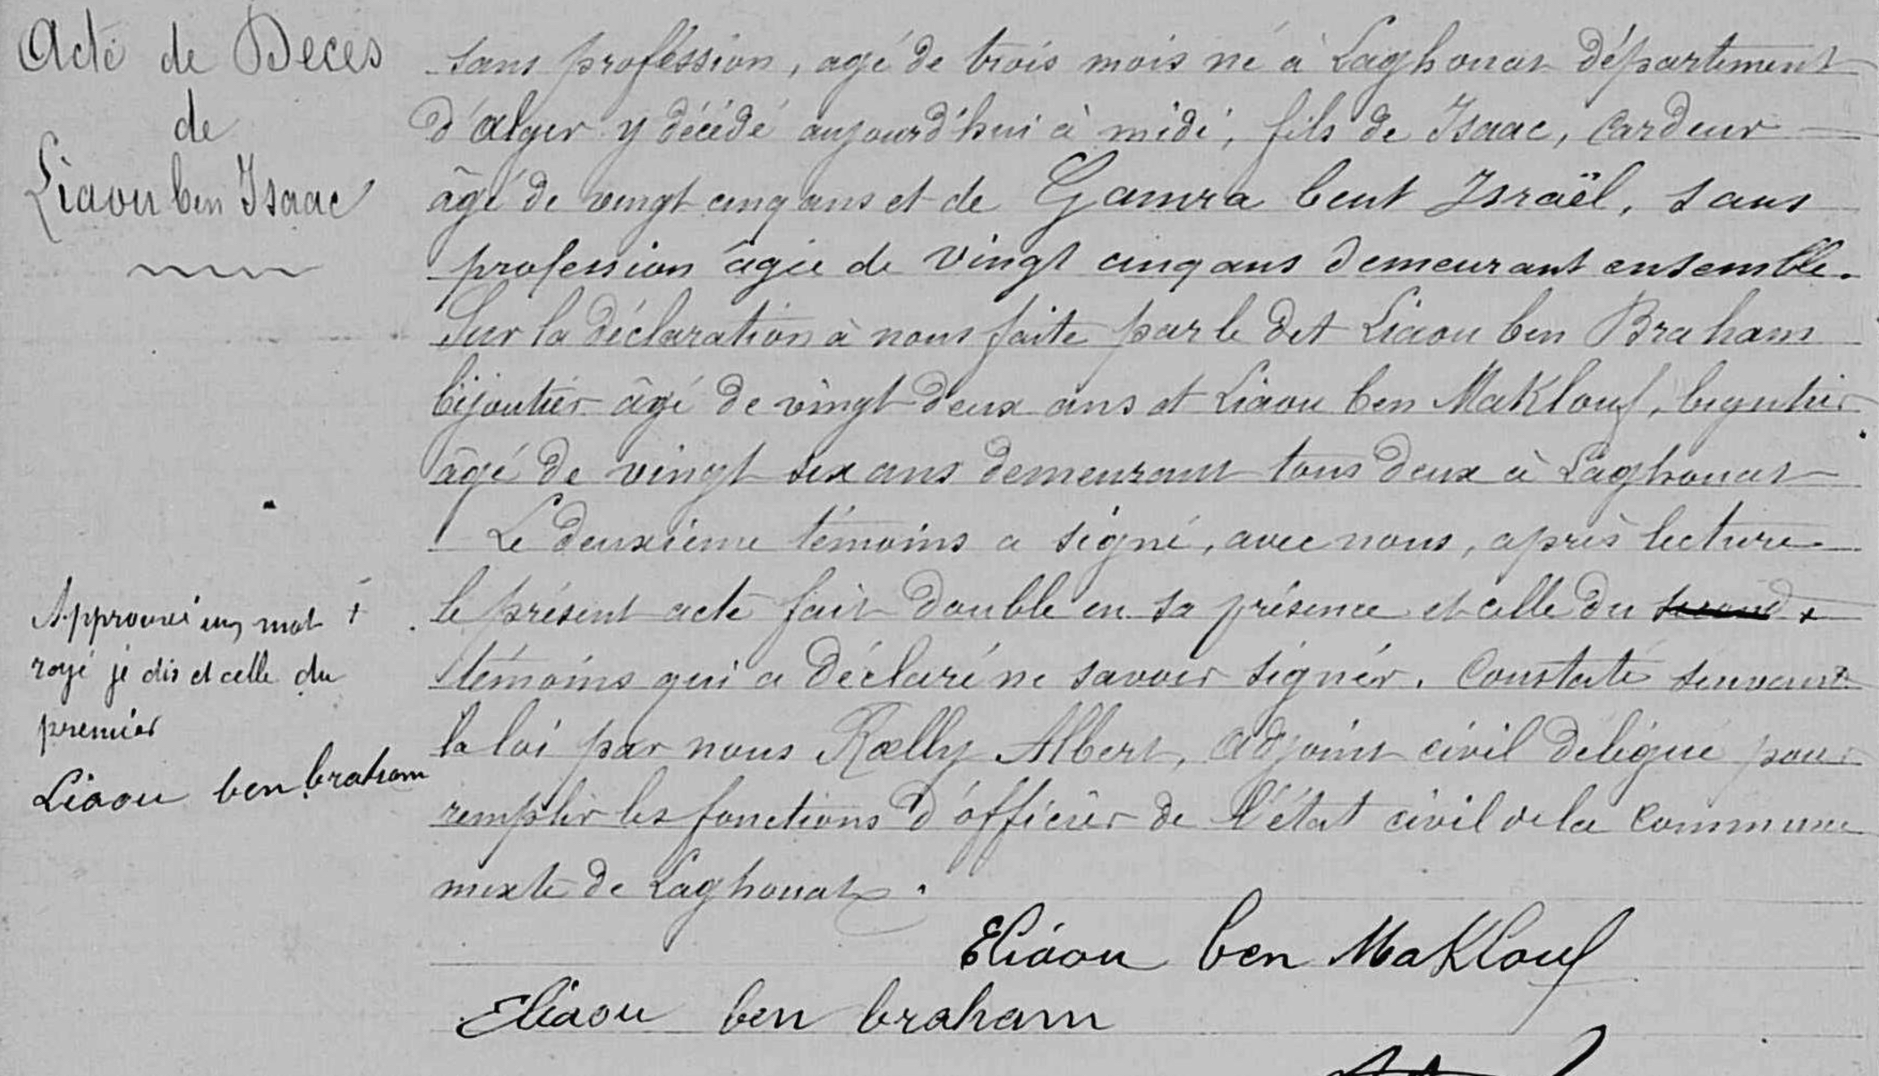 Acte de Deces
de
Liaou ben Isaac
sans profession, agé de trois mois né à Laghouat département
d'alger y décédé aujourd'hui à midi, fils de Isaac, cardeur
âgé de vingt cinq ans et de Gamra bent Israël, sans
profession âgée de vingt cinq ans demeurant ensemble.
Sur la déclaration à nous faite par le dit Liaou ben Braham
bijoutier âgé de vingt deux ans et Liaou ben Maklouf, bijoutier
âgé de vingt six ans demeurant tous deux à Laghouat
Le deuxième témoins a signé, avec nous, après lecture
le présent acte fait double en sa présence et celle du second +
témoins qui a déclaré ne savoir signer. Constaté suivant
la loi par nous Rœlly Albert, adjoint civil délégué pour
remplir les fonctions d'officier de l'état civil de la commune
mixte de Laghouat.
Approuvé un mot +
rayé je dis et celle du
premier
Liaou ben braham
Eliaou ben Maklouf
Eliaou ben braham